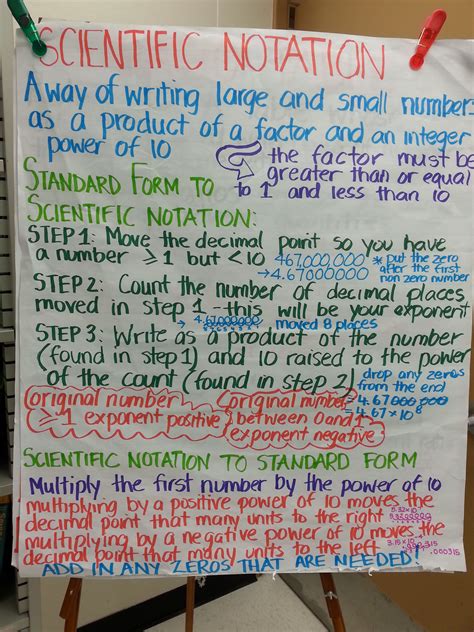 SCIENTIFIC NOTATION
A way of writing large and small number
as a product of a factor and an integer
power of 10
the factor must be
greater than or equal
to 1 and less than 10
STANDARD FORM TO
SCIENTIFIC NOTATION:
STEP 1: Move the decimal point so you have
a number ≥ 1 but < 10
467,000,000
→ 4.67000000
* put the zero
after the first
non zero number
STEP 2: Count the number of decimal places
moved in step 1 - this will be your exponent
4.67000000
moved 8 places
STEP 3: Write as a product of the number
(found in step 1) and 10 raised to the power
of the count (found in step 2)
drop any zeros
from the end
4.67000,000
= 4.67×10⁸
original number
≥ 1 exponent positive
original number
between 0 and 1
exponent negative
SCIENTIFIC NOTATION TO STANDARD FORM
Multiply the first number by the power of 10
multiplying by a positive power of 10 moves the
decimal point that many units to the right
multiplying by a negative power of 10 moves the
decimal point that many units to the left
.000315
ADD IN ANY ZEROS THAT ARE NEEDED!